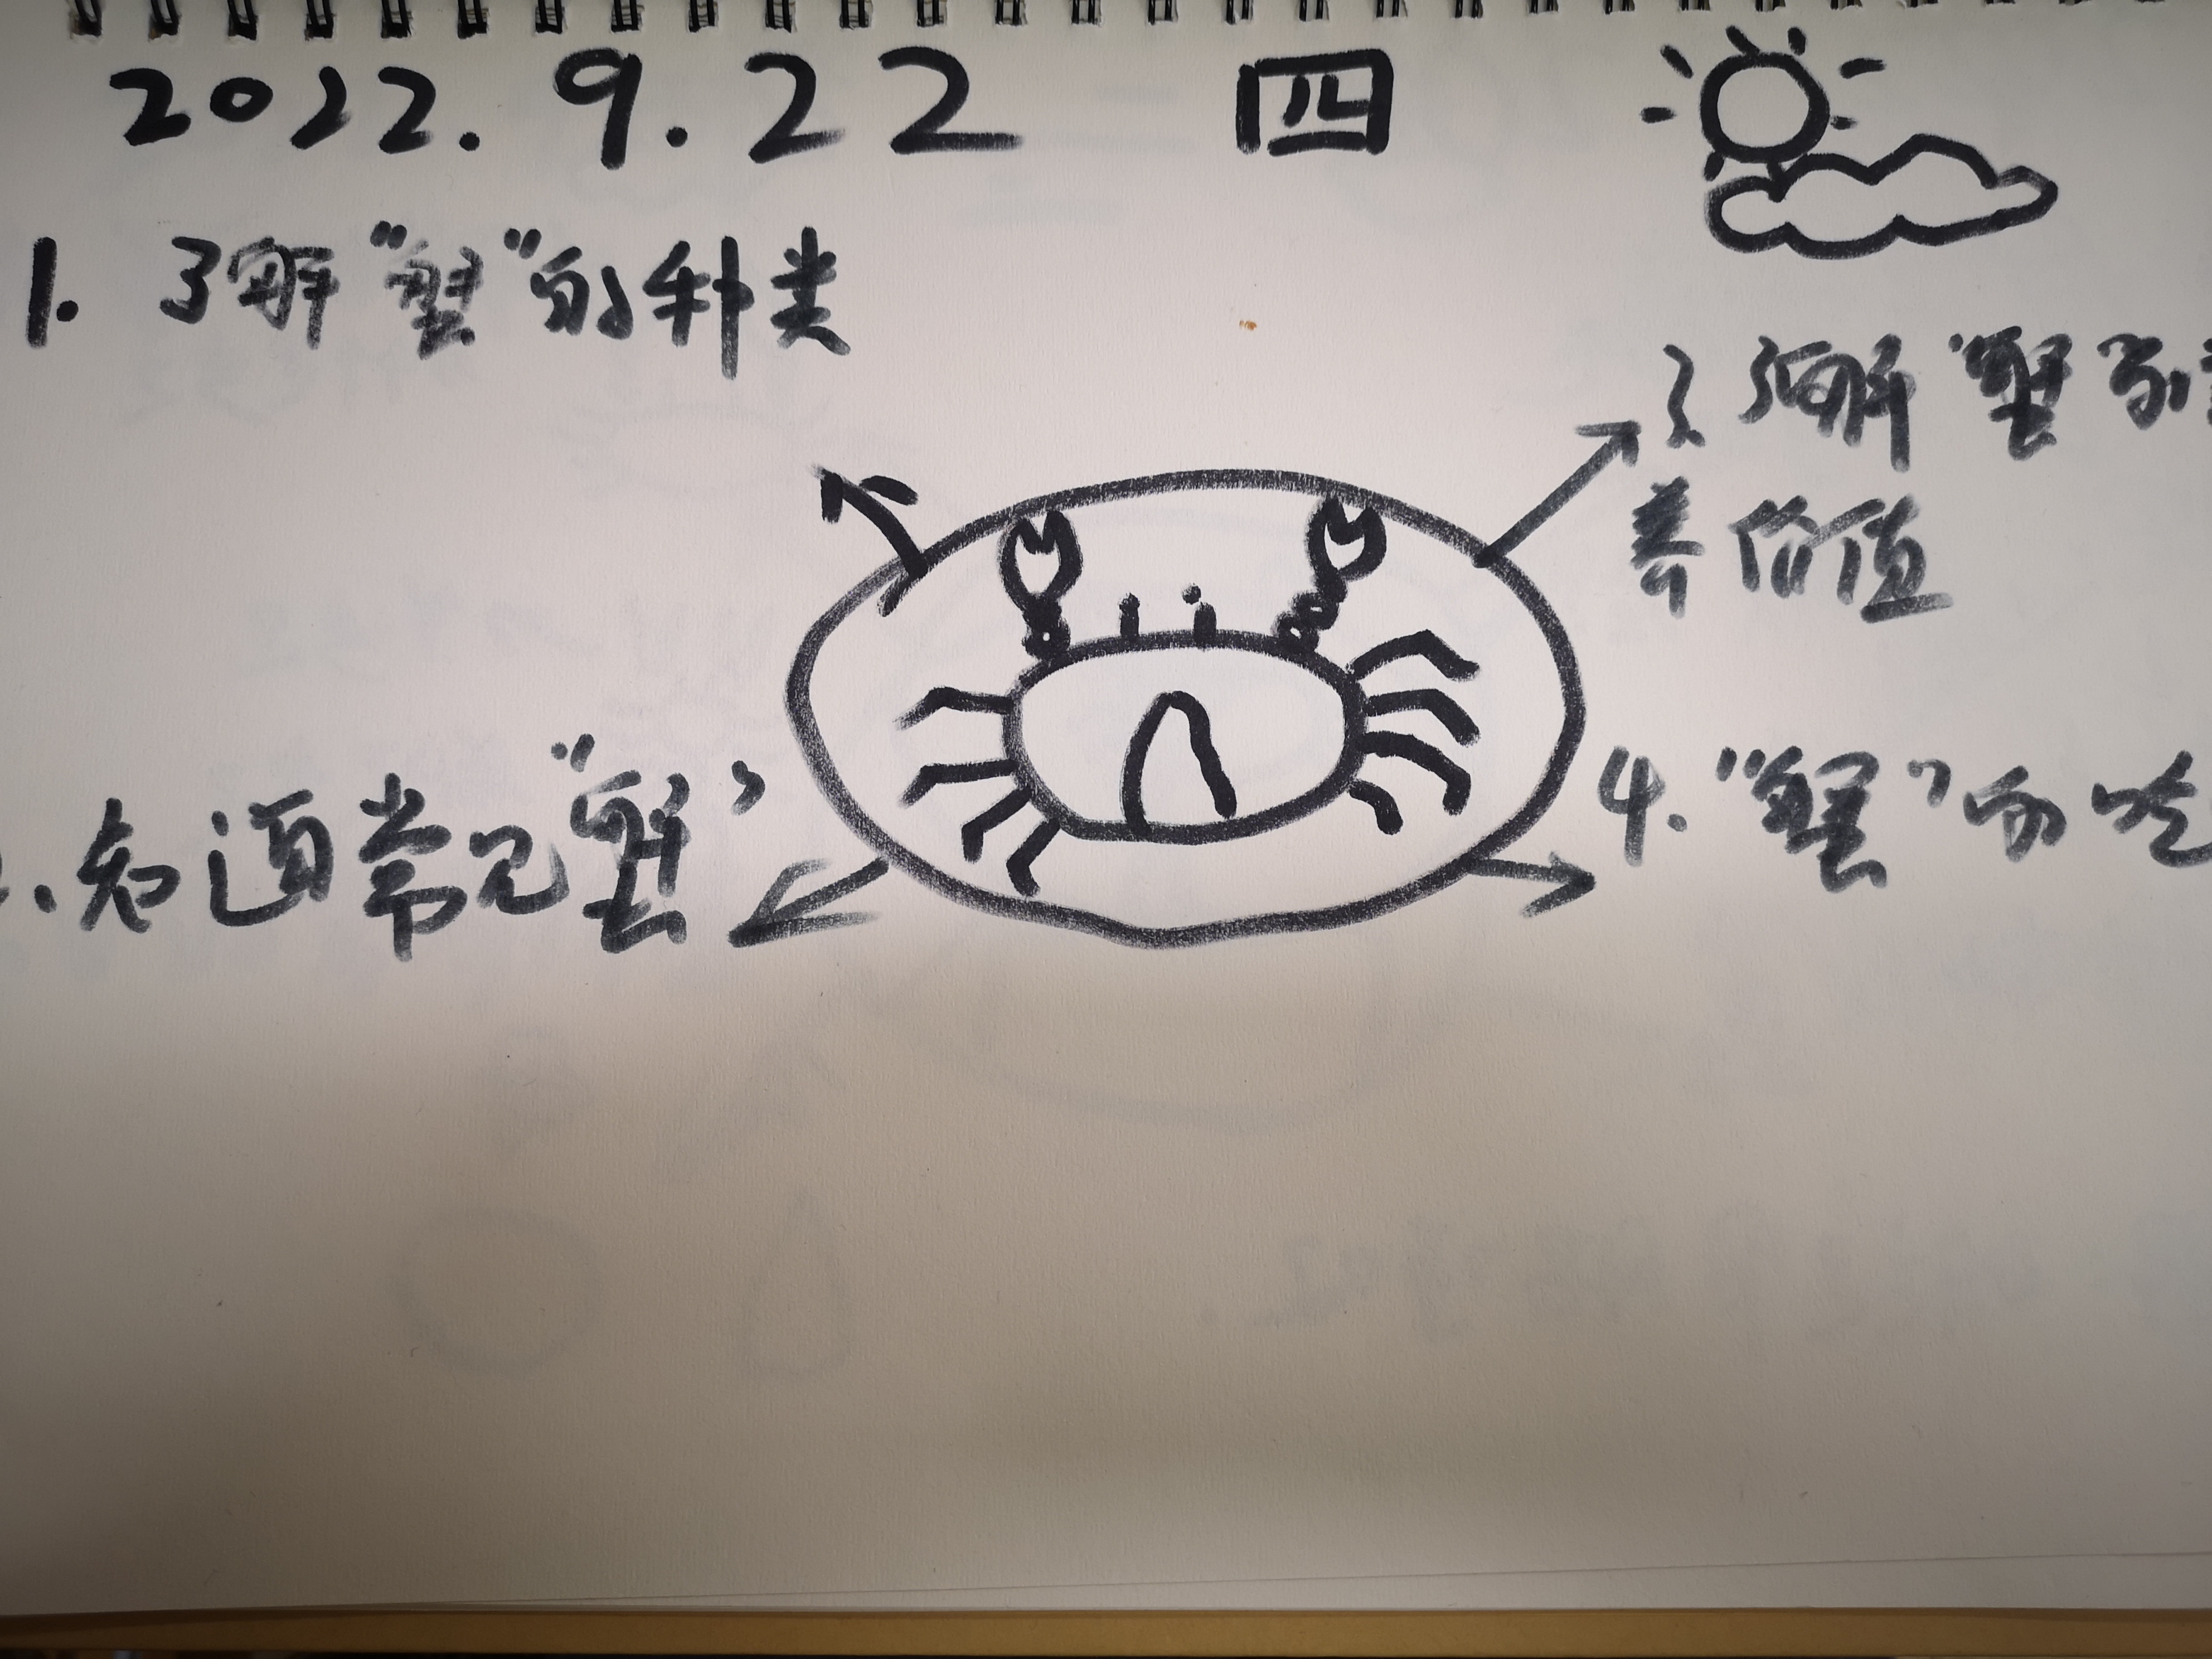 2022.9.22 四
1. 了解“蟹”的种类
3 了解“蟹的
养价值
知道常见“蟹”
4. “蟹”的吃